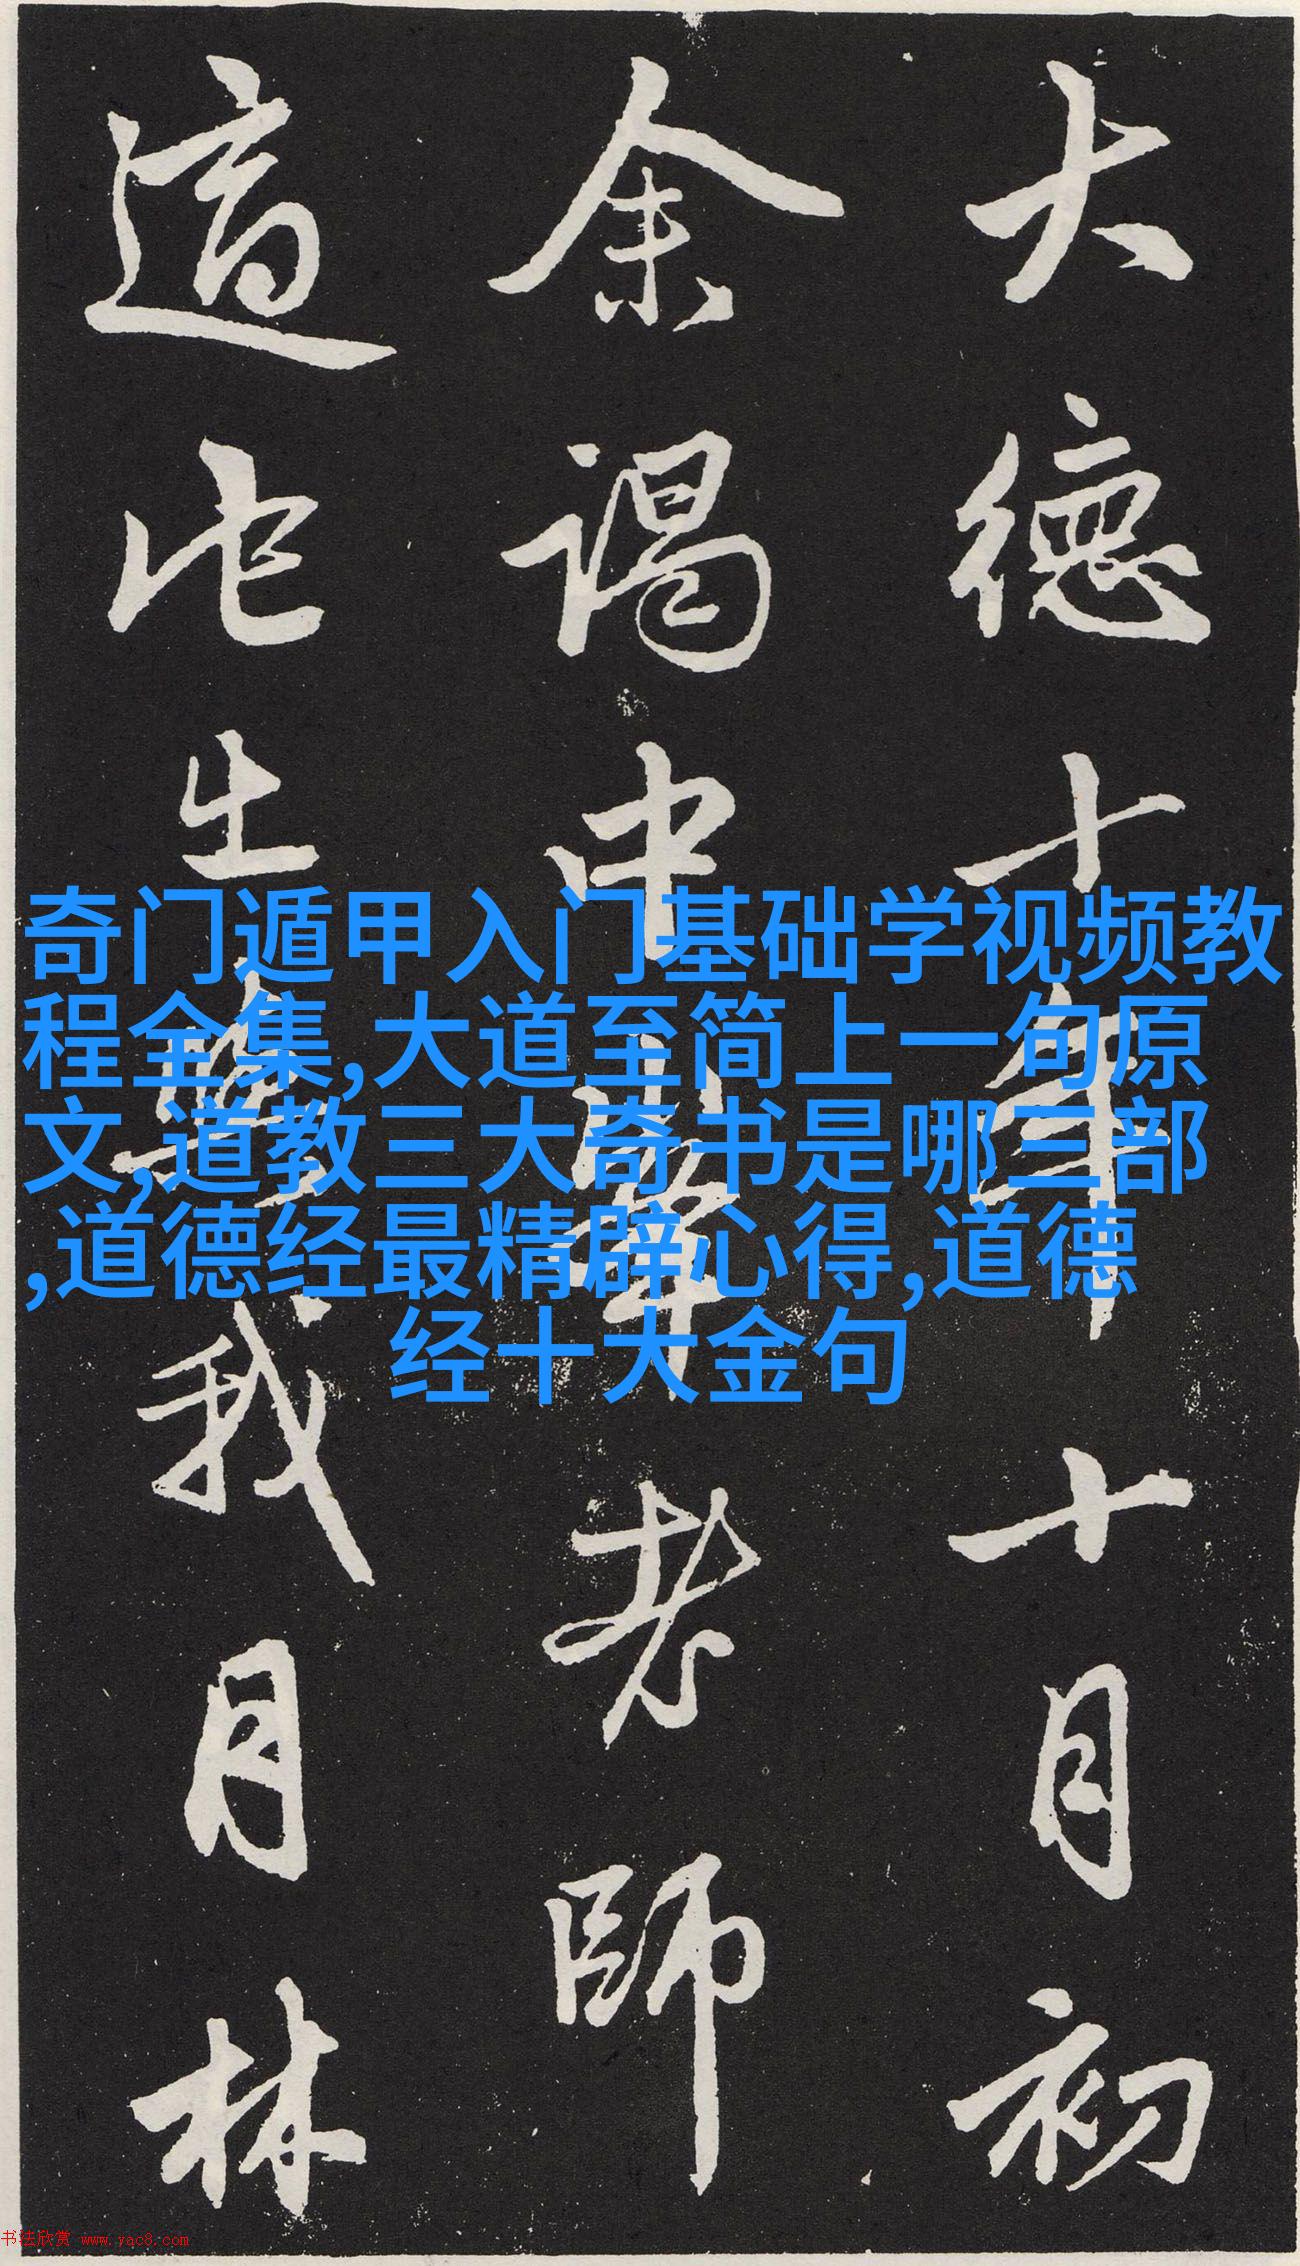 大德十一年十月初
余謁中峯老師
適此出與我月林
奇门遁甲入门基础学视频教
程全集,大道至简上一句原
文,道教三大奇书是哪三部
,道德经最精辟心得,道德
经十大金句
书法欣赏 www.yac8.com